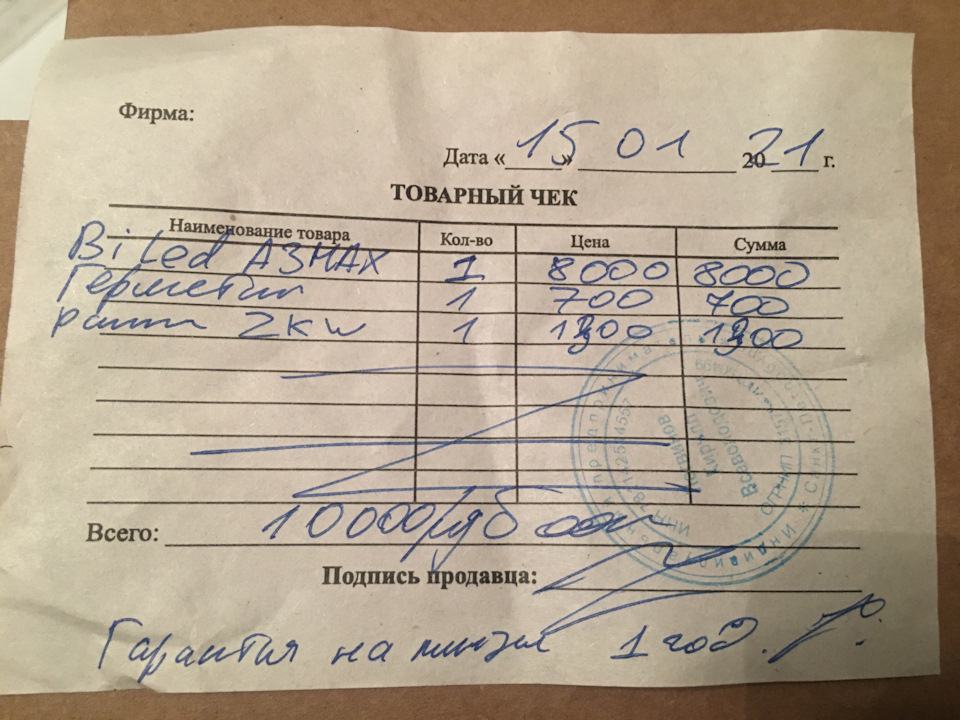 Фирма:
Дата « 15 » 01 20 21 г.
ТОВАРНЫЙ ЧЕК
Наименование товара Кол-во Цена Сумма
Bi Led A3MAX 1 8000 8000
Герметик 1 700 700
рамки 2kw 1 1300 1300
Всего: 10000 руб 00
Подпись продавца:
Гарантия на линзы 1 год.
Индивидуальный предприниматель * Санкт-Петербург
Кирилл
Всеволодович
ИНН
ОГРНИП